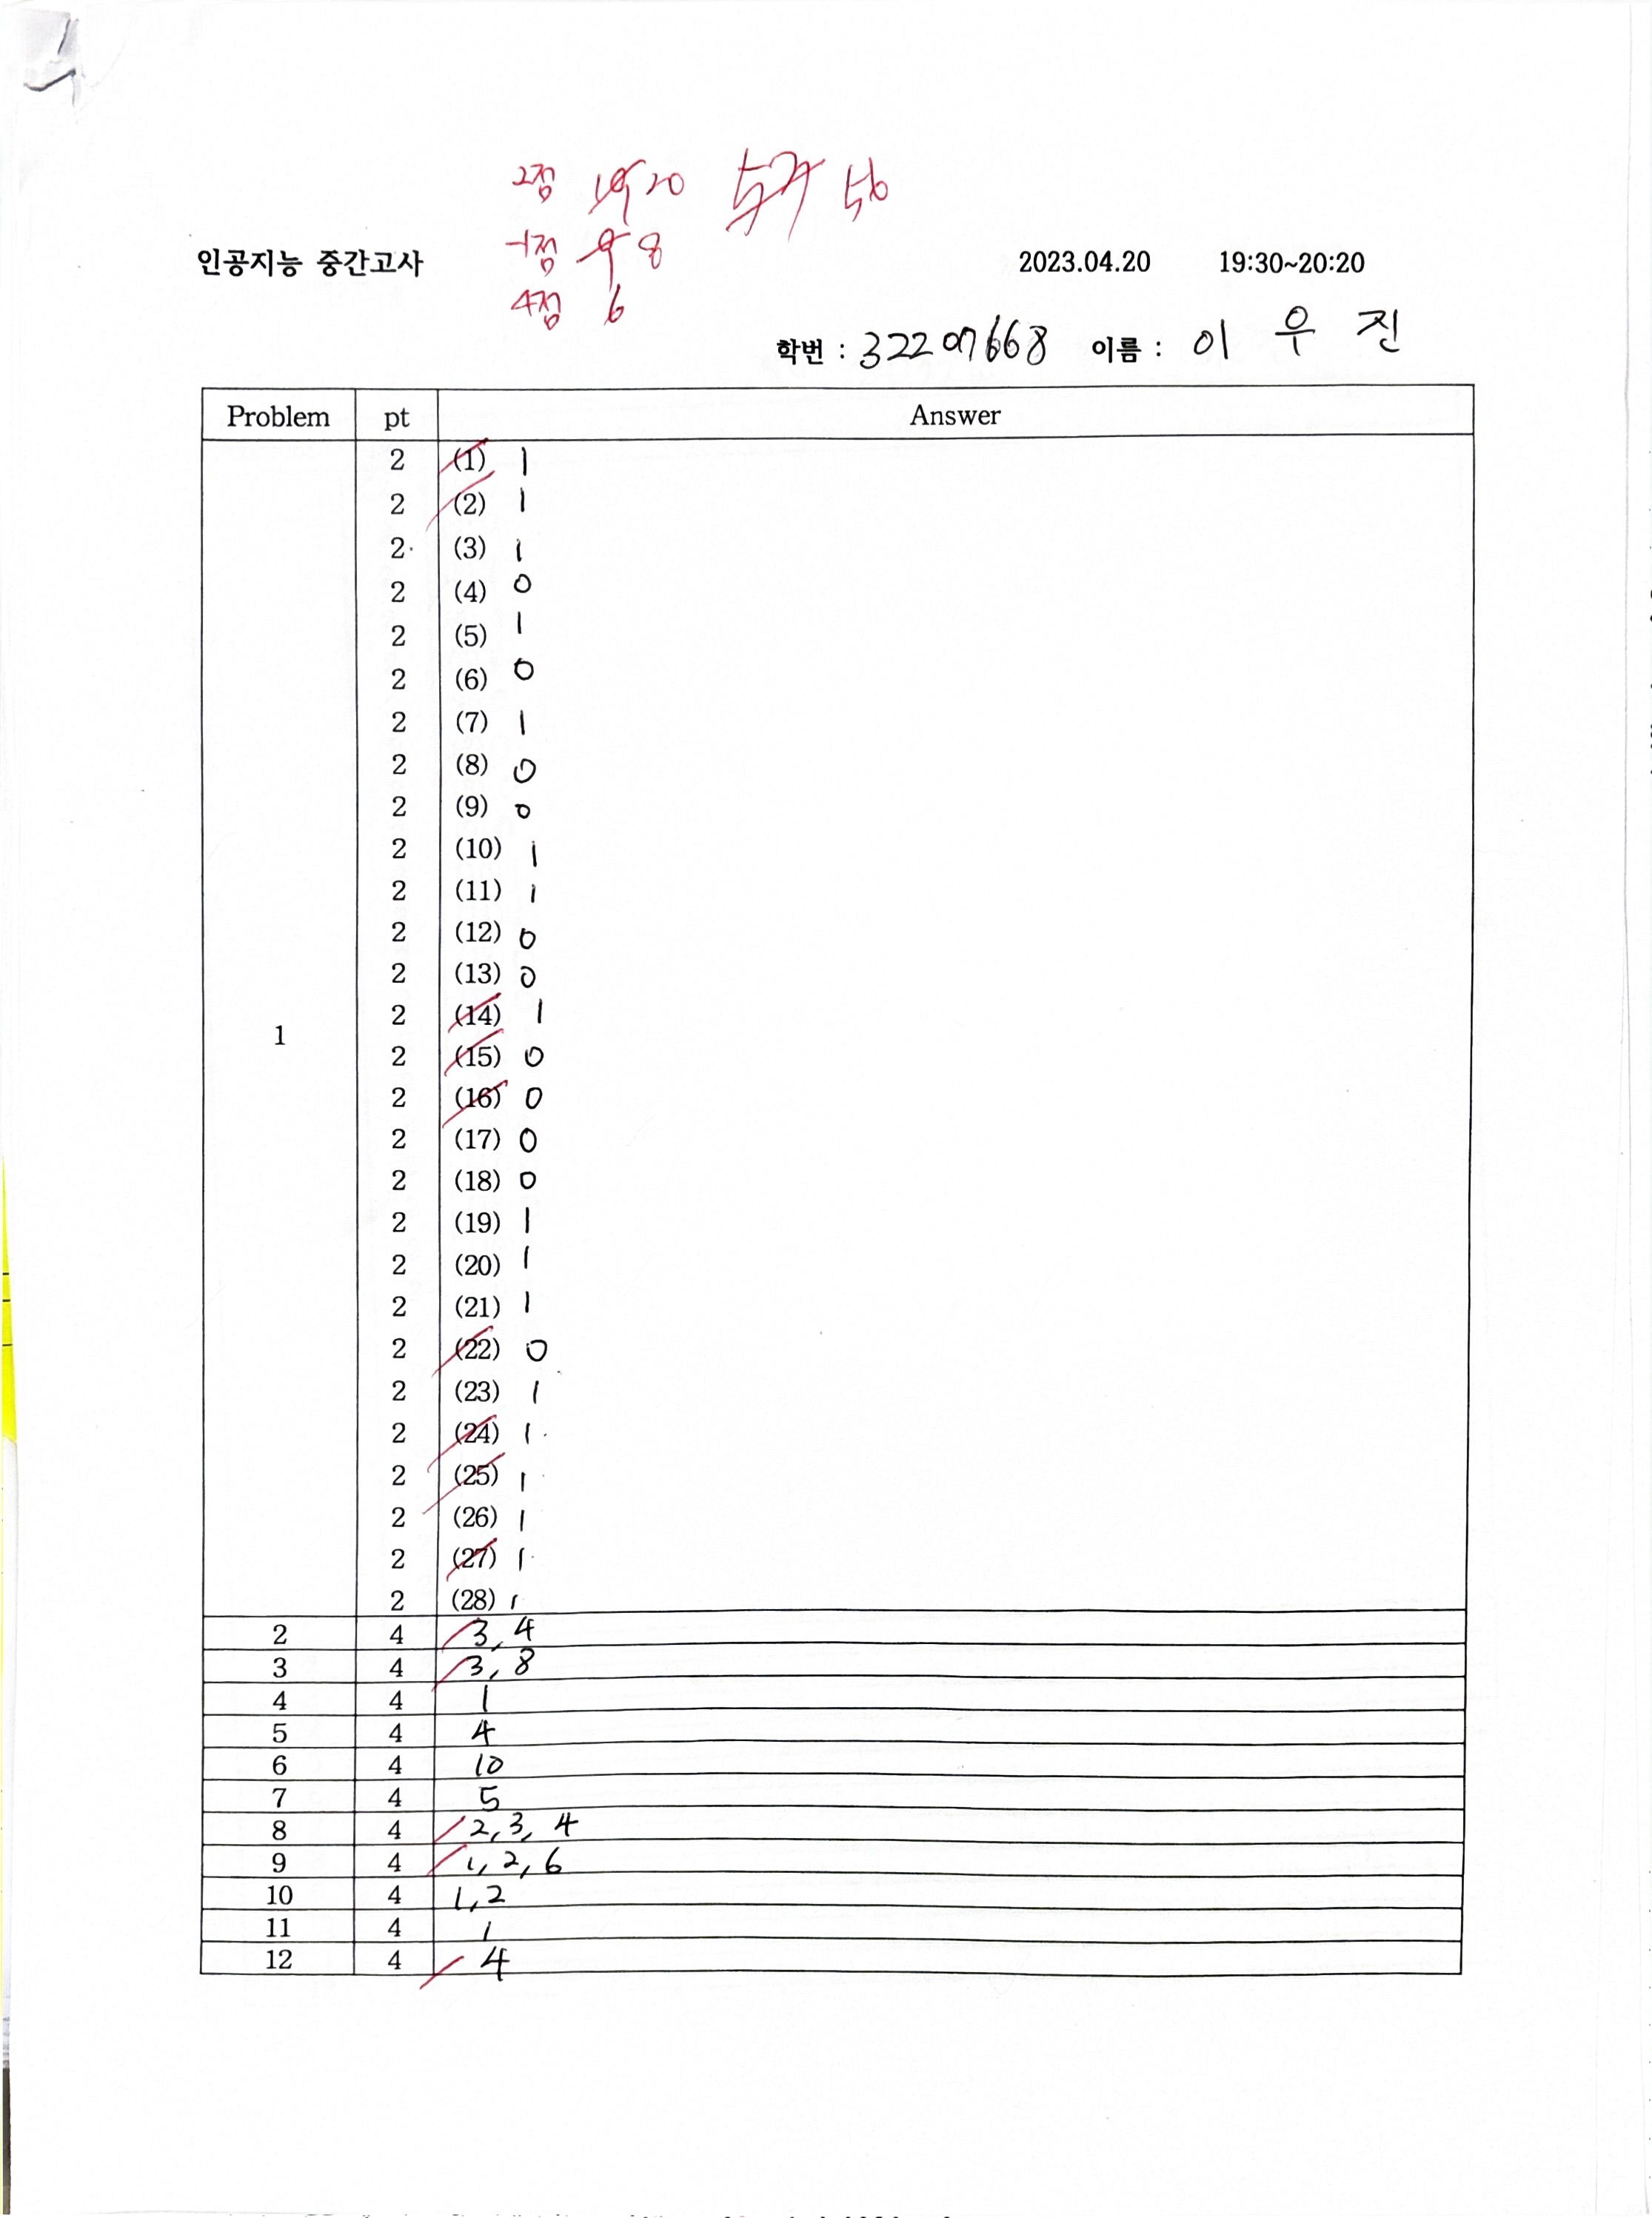 2점 20 56
-1점 8
4점 6
인공지능 중간고사 2023.04.20 19:30~20:20
학번 : 32207668 이름 : 이 우 진
Problem pt Answer
2 (1) 1
2 (2) 1
2 (3) 1
2 (4) 0
2 (5) 1
2 (6) 0
2 (7) 1
2 (8) 0
2 (9) 0
2 (10) 1
2 (11) 1
2 (12) 0
2 (13) 0
2 (14) 1
1
2 (15) 0
2 (16) 0
2 (17) 0
2 (18) 0
2 (19) 1
2 (20) 1
2 (21) 1
2 (22) 0
2 (23) 1
2 (24) 1
2 (25) 1
2 (26) 1
2 (27) 1
2 (28) 1
2 4 3, 4
3 4 3, 8
4 4 1
5 4 4
6 4 10
7 4 5
8 4 2, 3, 4
9 4 1, 2, 6
10 4 1, 2
11 4 1
12 4 4